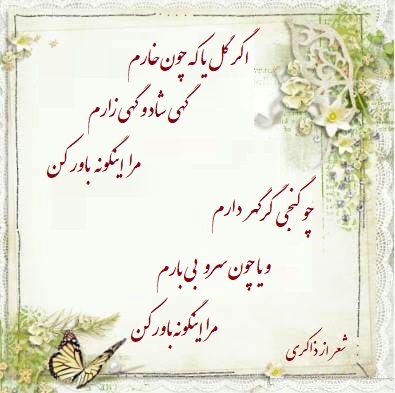 اگر گل یا که چون خارم
گهی شاد و گهی زارم
مرا اینگونه باور کن
چو گنجی گر گهر دارم
و یا چون سرو بی بارم
مرا اینگونه باور کن
شعر از ذاکری